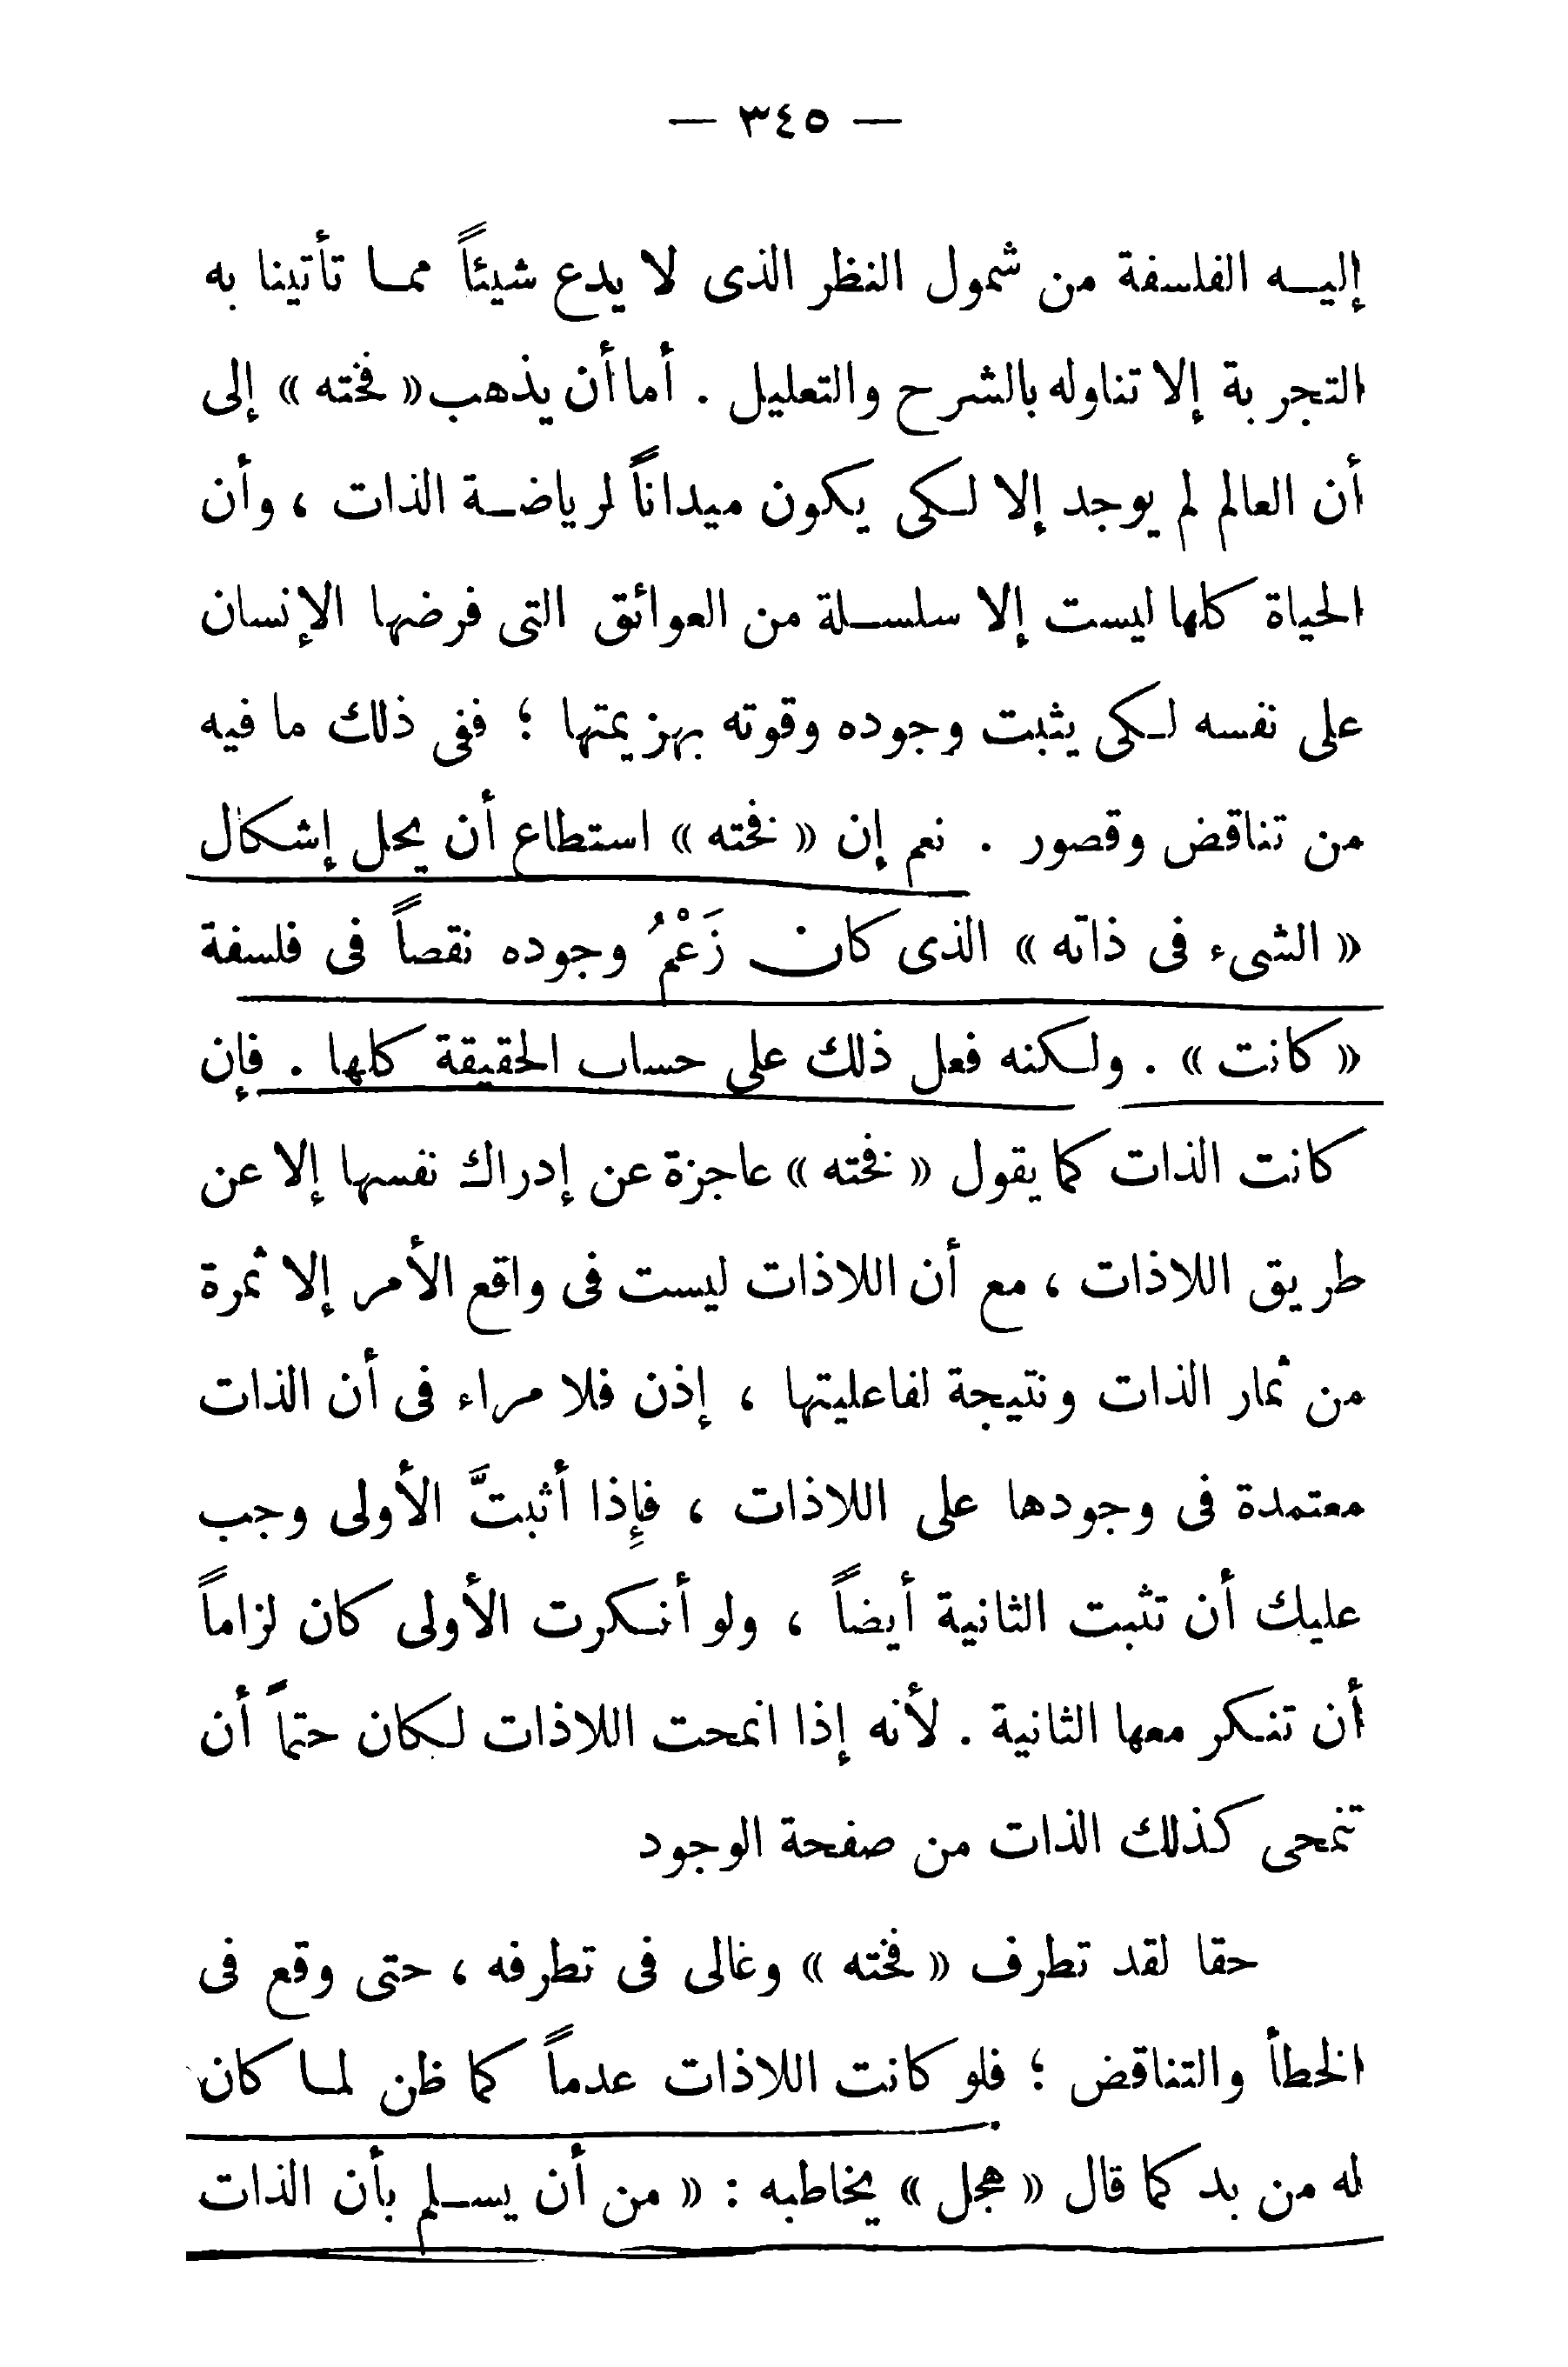 — ٣٤٥ —
إليه الفلسفة من شمول النظر الذى لا يدع شيئاً مما تأتينا به
التجربة إلا تناوله بالشرح والتعليل . أما أن يذهب « فخته » إلى
أن العالم لم يوجد إلا لكى يكون ميداناً لرياضة الذات ، وأن
الحياة كلها ليست إلا سلسلة من العوائق التى فرضها الإنسان
على نفسه لكى يثبت وجوده وقوته بهزيمتها ؛ ففى ذلك ما فيه
من تناقض وقصور . نعم إن « فخته » استطاع أن يحل إشكال
« الشىء فى ذاته » الذى كان زَعْمُ وجوده نقصاً فى فلسفة
« كانت » . ولكنه فعل ذلك على حساب الحقيقة كلها . فإن
كانت الذات كما يقول « فخته » عاجزة عن إدراك نفسها إلا عن
طريق اللاذات ، مع أن اللاذات ليست فى واقع الأمر إلا ثمرة
من ثمار الذات ونتيجة لفاعليتها ، إذن فلا مراء فى أن الذات
معتمدة فى وجودها على اللاذات ، فإِذا أثبتَّ الأولى وجب
عليك أن تثبت الثانية أيضاً ، ولو أنكرت الأولى كان لزاماً
أن تنكر معها الثانية . لأنه إذا انمحت اللاذات لكان حتماً أن
تنمحى كذلك الذات من صفحة الوجود
حقا لقد تطرف « فخته » وغالى فى تطرفه ، حتى وقع فى
الخطأ والتناقض ؛ فلو كانت اللاذات عدماً كما ظن لما كان
له من بد كما قال « هجل » يخاطبه : « من أن يسلم بأن الذات